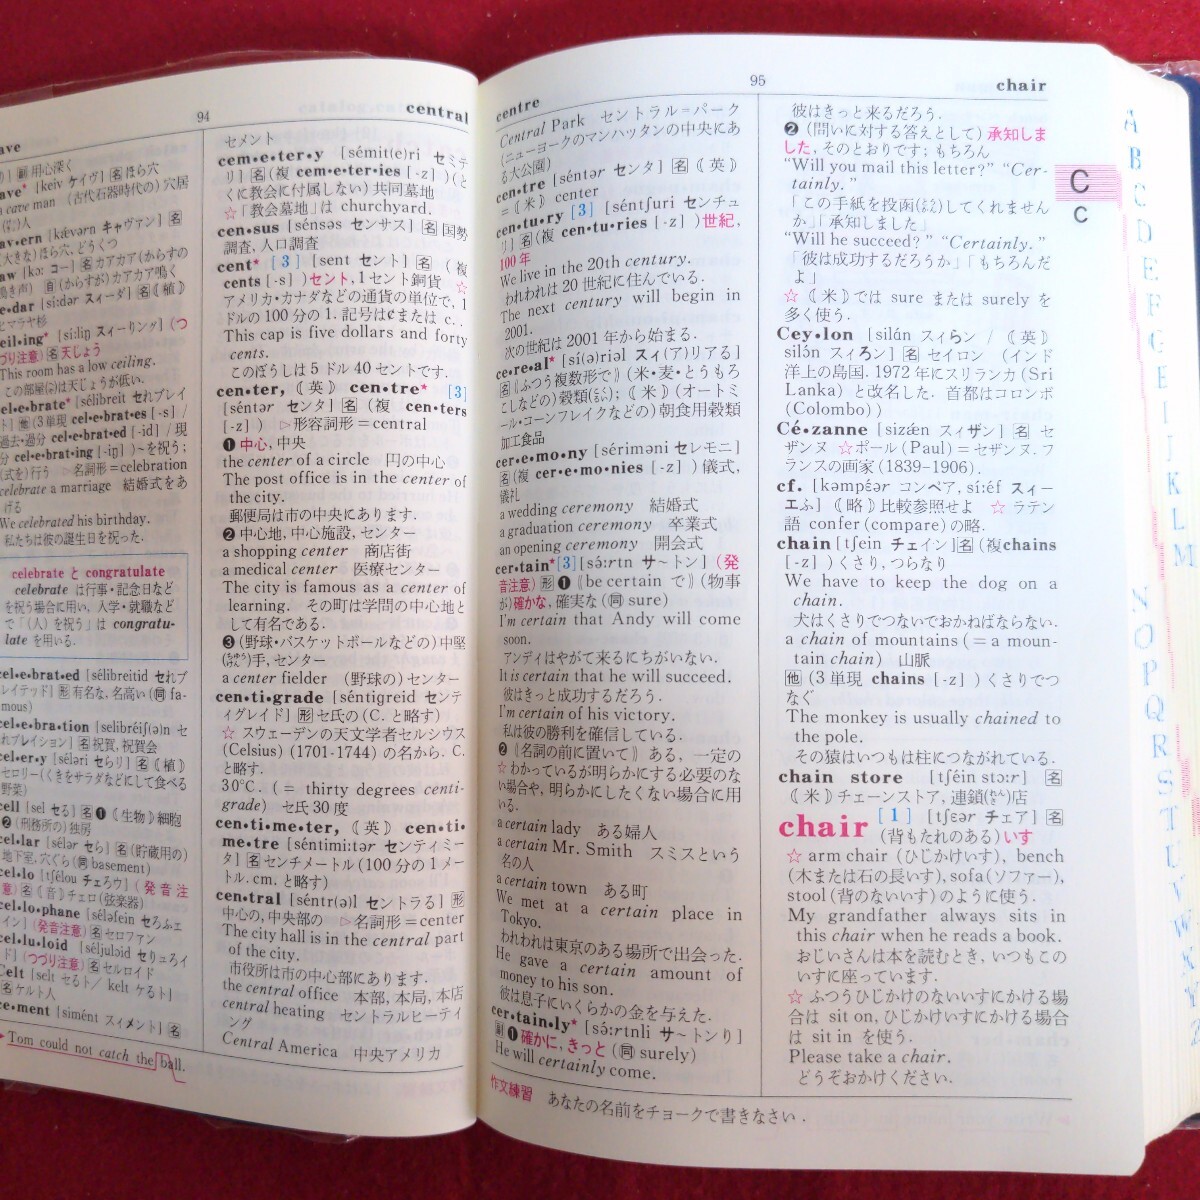 94
central
セメント
cem•e•ter•y [sémit(e)ri セミテ
リ] 名 (複 cem•e•ter•ies [-z] ) (と
くに教会に付属しない) 共同墓地
☆「教会墓地」は churchyard.
cen•sus [sénsəs センサス] 名 国勢
調査, 人口調査
cent* [3] [sent セント] 名 (複
cents [-s] ) セント, 1 セント銅貨 ☆
アメリカ・カナダなどの通貨の単位で, 1
ドルの 100 分の 1. 記号は¢または c. .
This cap is five dollars and forty
cents.
このぼうしは 5 ドル 40 セントです.
cen•ter, 《英》 cen•tre* [3]
[séntər センタ] 名 (複 cen•ters
[-z] ) ▷形容詞形=central
❶ 中心, 中央
the center of a circle 円の中心
The post office is in the center of
the city.
郵便局は市の中央にあります.
❷ 中心地, 中心施設, センター
a shopping center 商店街
a medical center 医療センター
The city is famous as a center of
learning. その町は学問の中心地と
して有名である.
❸ (野球・バスケットボールなどの) 中堅
(ちゅう)手, センター
a center fielder (野球の) センター
cen•ti•grade [séntigreid センテ
ィグレイド] 形 セ氏の (C. と略す)
☆ スウェーデンの天文学者セルシウス
(Celsius) (1701-1744) の名から. C.
と略す.
30°C. (= thirty degrees centi-
grade) セ氏 30 度
cen•ti•me•ter, 《英》 cen•ti•
me•tre [séntimi:tər センティミー
タ] 名 センチメートル (100 分の 1 メー
トル. cm. と略す)
cen•tral [séntr(ə)l セントラる] 形
中心の, 中央部の ▷名詞形=center
The city hall is in the central part
of the city.
市役所は市の中心部にあります.
the central office 本部, 本局, 本店
central heating セントラルヒーティ
ング
Central America 中央アメリカ
ave
用心深く
ave* [keiv ケイヴ] 名 ほら穴
a cave man (古代石器時代の) 穴居
人
av•ern [kǽvərn キャヴァン] 名
(大きな) ほら穴, どうくつ
aw [kɔ: コー] 名 カアカア (からすの
鳴き声) 自 (からすが) カアカア鳴く
e•dar [sí:dər スィーダ] 名《植》
ヒマラヤ杉
eil•ing* [sí:liŋ スィーリング] (つ
づり注意) 名 天じょう
This room has a low ceiling.
この部屋(や)は天じょうが低い.
cel•e•brate* [sélibreit せれブレイ
ト] 他 (3 単現 cel•e•brat•es [-s] /
過去・過分 cel•e•brat•ed [-id] / 現
分 cel•e•brat•ing [-iŋ] ) ~を祝う;
(式を)行う ▷名詞形=celebration
celebrate a marriage 結婚式をあ
げる
We celebrated his birthday.
私たちは彼の誕生日を祝った.
celebrate と congratulate
celebrate は行事・記念日など
を祝う場合に用い, 入学・就職など
で「(人) を祝う」は congratu-
late を用いる.
cel•e•brat•ed [sélibreitid せれブ
レイテッド] 形 有名な, 名高い (同 fa-
mous)
cel•e•bra•tion [selibréiʃ(ə)n セ
れブレイション] 名 祝賀, 祝賀会
cel•er•y [séləri セらリ] 名《植》
セロリー (くきをサラダなどにして食べる
野菜)
cell [sel セる] 名 ❶《生物》細胞
❷ (刑務所の) 独房
cel•lar [sélər セら] 名 (貯蔵用の)
地下室, 穴ぐら (同 basement)
cel•lo [tʃélou チェろウ] (発音注
意) 名《音》チェロ (弦楽器)
cel•lo•phane [séləfein セろふェ
イン] (発音注意) 名 セロファン
cel•lu•loid [séljuloid セりュろイ
ド] (つづり注意) 名 セルロイド
Celt [selt セるト/ kelt ケるト]
名 ケルト人
ce•ment [simént スィメント] 名
Tom could not catch the ball.
centre
95
chair
Central Park セントラル=パーク
(ニューヨークのマンハッタンの中央にあ
る大公園)
cen•tre [séntər センタ] 名《英》
=《米》center
cen•tu•ry [3] [séntʃuri センチュ
リ] 名 (複 cen•tu•ries [-z] ) 世紀,
100 年
We live in the 20th century.
われわれは 20 世紀に住んでいる.
The next century will begin in
2001.
次の世紀は 2001 年から始まる.
ce•re•al* [sí(ə)riəl スィ(ア)リアる]
名《ふつう複数形で》(米・麦・とうもろ
こしなどの) 穀類(るい);《米》(オートミ
ール・コーンフレイクなどの) 朝食用穀類
加工食品
cer•e•mo•ny [sérimòni セレモニ]
名 (複 cer•e•mo•nies [-z] ) 儀式,
儀礼
a wedding ceremony 結婚式
a graduation ceremony 卒業式
an opening ceremony 開会式
cer•tain* [3] [sə́:rtn サ~トン] (発
音注意) 形 ❶《be certain で》(物事
が) 確かな, 確実な (同 sure)
I'm certain that Andy will come
soon.
アンディはやがて来るにちがいない.
It is certain that he will succeed.
彼はきっと成功するだろう.
I'm certain of his victory.
私は彼の勝利を確信している.
❷《名詞の前に置いて》ある, 一定の
☆わかっているが明らかにする必要のな
い場合や, 明らかにしたくない場合に用
いる.
a certain lady ある婦人
a certain Mr. Smith スミスという
名の人
a certain town ある町
We met at a certain place in
Tokyo.
われわれは東京のある場所で出会った.
He gave a certain amount of
money to his son.
彼は息子にいくらかの金を与えた.
cer•tain•ly* [sə́:rtnli サ~トンり]
副 ❶ 確かに, きっと (同 surely)
He will certainly come.
彼はきっと来るだろう.
❷ (問いに対する答えとして) 承知しま
した, そのとおりです; もちろん
"Will you mail this letter?" "Cer-
tainly."
「この手紙を投函(かん)してくれません
か」「承知しました」
"Will he succeed?" "Certainly."
「彼は成功するだろうか」「もちろんだ
よ」
☆《米》では sure または surely を
多く使う.
Cey•lon [silán スィらン /《英》
silɔ́n スィろン] 名 セイロン (インド
洋上の島国. 1972 年にスリランカ (Sri
Lanka) と改名した. 首都はコロンボ
(Colombo) )
Cé•zanne [sizǽn スィザン] 名 セ
ザンヌ ☆ポール (Paul) =セザンヌ. フ
ランスの画家 (1839-1906).
cf. [kəmpéər コンペア, sí:éf スィー
エふ]《略》比較参照せよ ☆ ラテン
語 confer (compare) の略.
chain [tʃein チェイン] 名 (複 chains
[-z] ) くさり, つらなり
We have to keep the dog on a
chain.
犬はくさりでつないでおかねばならない.
a chain of mountains (=a moun-
tain chain) 山脈
他 (3 単現 chains [-z] ) くさりでつ
なぐ
The monkey is usually chained to
the pole.
その猿はいつもは柱につながれている.
chain store [tʃéin stɔ:r] 名
《米》チェーンストア, 連鎖(さ)店
chair [1] [tʃɛər チェア] 名
(背もたれのある) いす
☆ arm chair (ひじかけいす), bench
(木または石の長いす), sofa (ソファー),
stool (背のないいす) のように使う.
My grandfather always sits in
this chair when he reads a book.
おじいさんは本を読むとき, いつもこの
いすに座っています.
☆ ふつうひじかけのないいすにかける場
合は sit on, ひじかけいすにかける場合
は sit in を使う.
Please take a chair.
どうぞおかけください.
作文練習 あなたの名前をチョークで書きなさい.
C
C
A
B
C
D
E
F
G
E
I
J
K
L
M
N
O
P
Q
R
S
T
U
V
W
X
Y